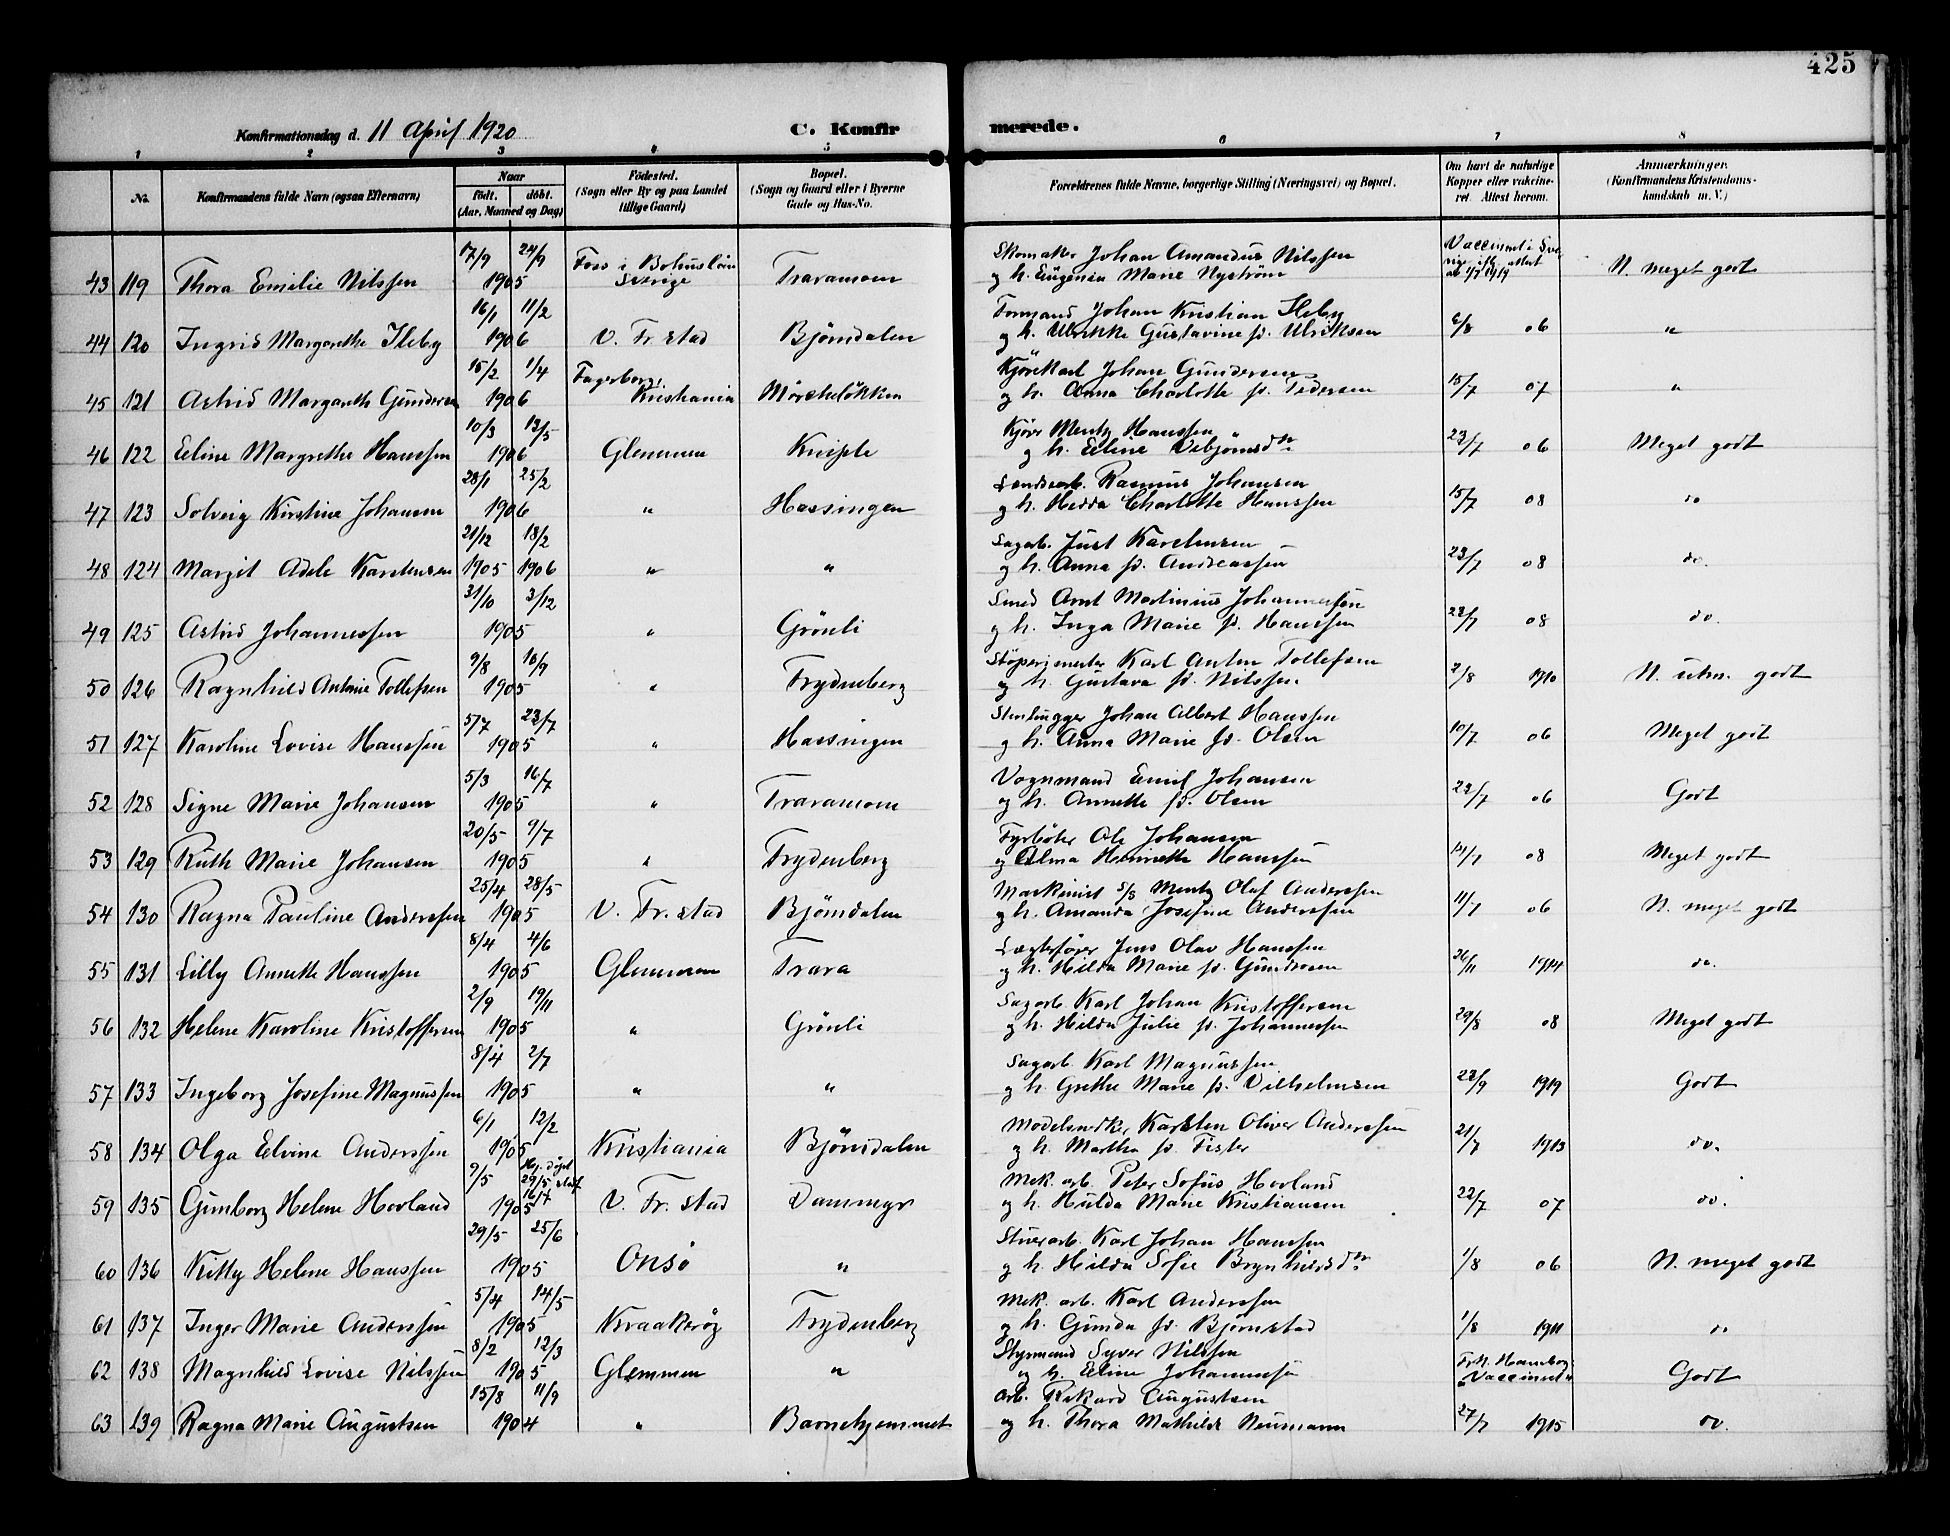 425
Konfirmationsdag d. 11 April 1920
C. Konfirmerede.
1 2 3 4 5 6 7 8
No. Konfirmandens fulde Navn (ogsaa Efternavn) Naar født. døbt. (Aar, Maaned og Dag) Fødested. (Sogn eller By og paa Landet tillige Gaard) Bopæl. (Sogn og Gaard eller i Byerne Gade og Hus-No. Forældrenes fulde Navne, borgerlige Stilling (Næringsvei) og Bopæl. Om havt de naturlige Kopper eller vaccineret. Attest herom. Anmærkninger. (Konfirmandens Kristendomskundskab m. V.)
17/9 24/9 Foss i Bohuslän Skomaker Johan Amandus Nilssen Vaccineret i Sve-
43 119 Thora Emilie Nilssen 1905 Sverige Traramoen og h. Eugenia Marie Nyström rige ifg. attest N. meget godt
16/1 11/2 Formand Johan Kristian Ileby
44 120 Ingrid Margarethe Ileby 1906 V. Fr. stad Bjørndalen og h. Ulrikke Gustavine f. Ulriksen 6/8 06 "
15/2 1/4 Fagerborg, Kjørekarl Johan Gundersen
45 121 Astrid Margareth Gundersen 1906 Kristiania Mørcheløkken og h. Anna Charlotte f. Pedersen 15/7 07 "
10/3 13/5 Kjører Mentz Hanssen
46 122 Eeline Margrethe Hanssen 1906 Glemmen Kniple og h. Eeline Vebjørnsdtr. 23/7 06 Meget godt
28/1 25/2 Landsarb. Rasmus Johansen
47 123 Solveig Kirstine Johansen 1906 " Hassingen og h. Hedda Charlotte Hanssen 15/7 08 do
21/12 18/2 Sagarb. Just Karelensen
48 124 Margit Adele Karelensen 1905 1906 " " og h. Anna f. Andreassen 23/7 08 do.
31/10 3/12 Smed Arnt Martinius Johannessen
49 125 Astrid Johannessen 1905 " Grønli og h. Inga Marie f. Hanssen 22/7 08 do.
9/8 10/9 Støperimester Karl Anton Tollefsen
50 126 Ragnhild Antonie Tollefsen 1905 " Frydenberg og h. Gustava f. Nilssen. 2/8 1910 N. ukn. godt
5/7 23/7 Stenhugger Johan Albert Hanssen
51 127 Karoline Lovise Hanssen 1905 " Hassingen og h. Anna Marie f. Olsen 10/7 06 Meget godt
5/3 16/7 Vognmand Emil Johansen
52 128 Signe Marie Johansen 1905 " Traramoen og h. Annette f. Olsen 23/7 06 Godt
20/5 9/7 Fyrbøter Ole Johansen
53 129 Ruth Marie Johansen 1905 " Frydenberg og Alma Henriette Hanssen 14/7 08 Meget godt
25/4 28/5 Maskinist s/s Mentz Olaf Anderssen
54 130 Ragna Pauline Anderssen 1905 V. Fr. stad Bjørndalen og h. Amanda Josefine Anderssen 11/7 06 N. meget godt
8/4 4/6 Lægterfører Jens Olav Hanssen
55 131 Lilly Annette Hanssen 1905 Glemmen Trara og h. Hilda Marie f. Gundersen 26/11 1914 do.
2/9 19/11 Sagarb. Karl Johan Kristoffersen
56 132 Helene Karoline Kristoffersen 1905 " Grønli og h. Hilda Julie f. Johannessen 29/8 08 Meget godt
8/4 2/7 Sagarb. Karl Magnussen
57 133 Ingeborg Josefine Magnussen 1905 " " og h. Grethe Marie f. Vilhelmsen 23/9 1919 Godt
6/1 12/2 Modelsnedker Karsten Oliver Anderssen
58 134 Olga Elvine Anderssen 1905 Kristiania Bjørndalen og h. Martha f. Fister 21/7 1913 do.
9/5 Hj. døpt 29/5 stad. 16/7 Mek. arb. Peter Sofus Hovland
59 135 Gunborg Helene Hovland 1905 V. Fr. stad Dammyr og h. Hulda Marie Kristiansen 22/7 07 do.
29/5 25/6 Stuerarb. Karl Johan Hanssen
60 136 Kitty Helene Hanssen 1905 Onsø " og h. Hilda Sofie Brynhildsdtr. 1/8 06 N. meget godt
5/4 14/5 Mek. arb. Karl Anderssen
61 137 Inger Marie Anderssen 1905 Kraakerøy Frydenberg og h. Gunda f. Bjørnstad 1/8 1911 do
8/2 12/3 Styrmand Syver Nilssen
62 138 Magnhild Lovise Nilssen 1905 Glemmen " og h. Eeline Johannessen Vaccineret Godt
15/8 11/9 arb. Rikard Augustsen
63 139 Ragna Marie Augustsen 1904 " Barnehjemmet og h. Thora Mathilde Neumann 27/7 1915 do.